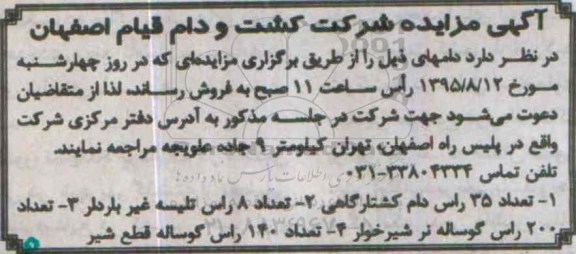 آگهی مزایده شرکت کشت و دام قیام اصفهان
در نظر دارد دامهای ذیل را از طریق برگزاری مزایده‌ای که در روز چهارشنبه
مورخ ۱۳۹۵/۸/۱۲ راس ساعت ۱۱ صبح به فروش رساند، لذا از متقاضیان
دعوت می‌شود جهت شرکت در جلسه مذکور به آدرس دفتر مرکزی شرکت
واقع در پلیس راه اصفهان، تهران کیلومتر ۹ جاده علویجه مراجعه نمایند.
تلفن تماس ۳۳۸۰۴۳۳۴-۰۳۱
۱- تعداد ۳۵ راس دام کشتارگاهی ۲- تعداد ۸ راس تلیسه غیر باردار ۳- تعداد
۲۰۰ راس گوساله نر شیرخوار ۴- تعداد ۱۴۰ راس گوساله قطع شیر